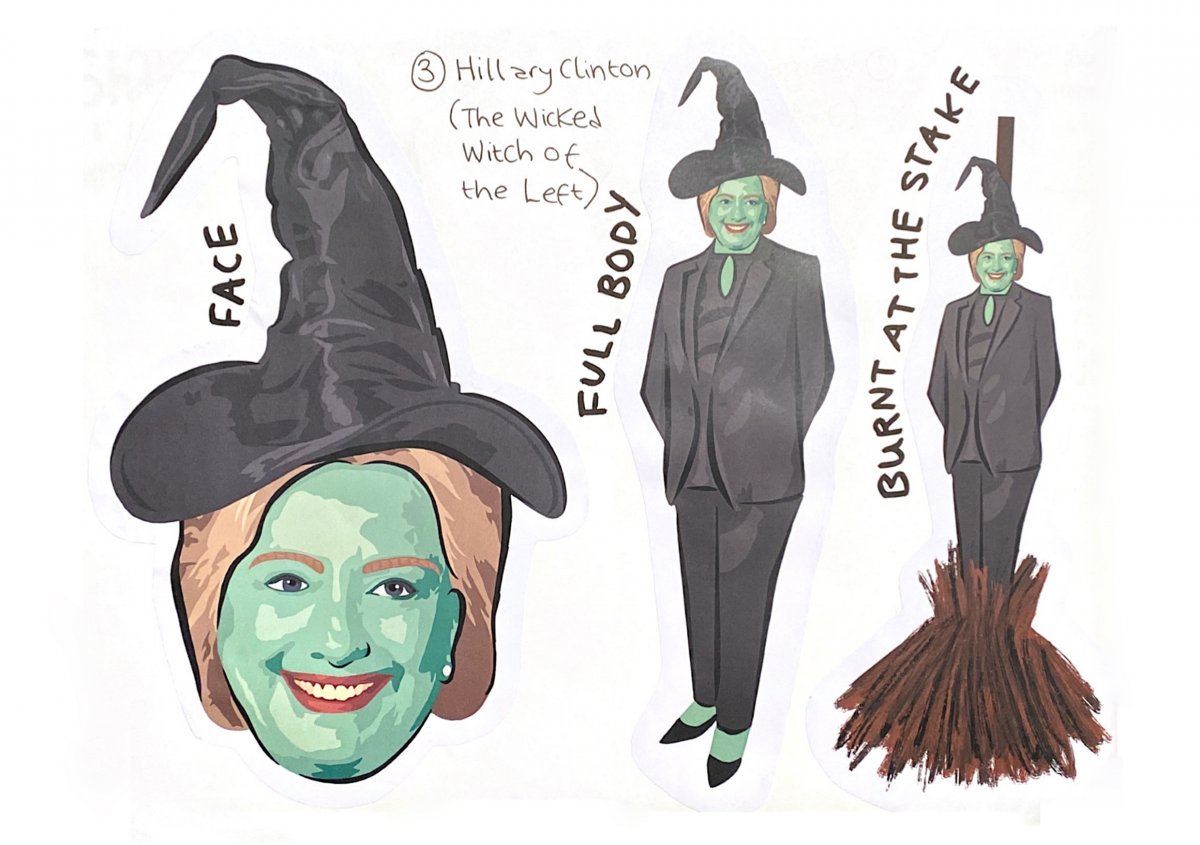 ③ Hillary Clinton
(The Wicked
Witch of
the Left)
FACE
FULL BODY
BURNT AT THE STAKE